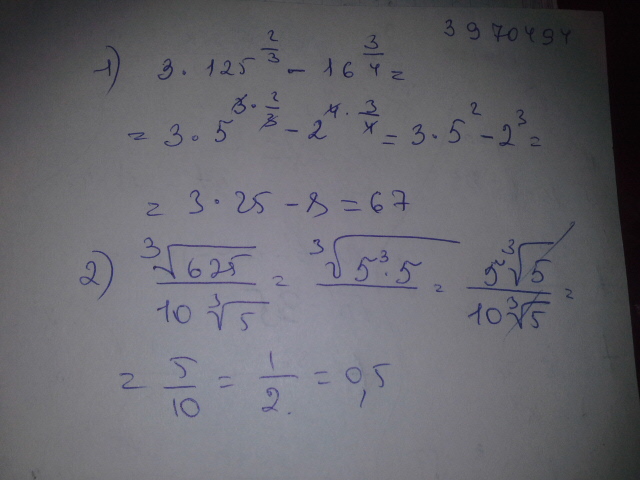 3970494
1) 3 · 125^(2/3) - 16^(3/4) =
= 3 · 5^(3 · 2/3) - 2^(4 · 3/4) = 3 · 5^2 - 2^3 =
= 3 · 25 - 8 = 67
2) ∛625 / 10 ∛5 = ∛(5^3 · 5) / = 5 ∛5 / 10 ∛5 =
= 5/10 = 1/2 = 0,5